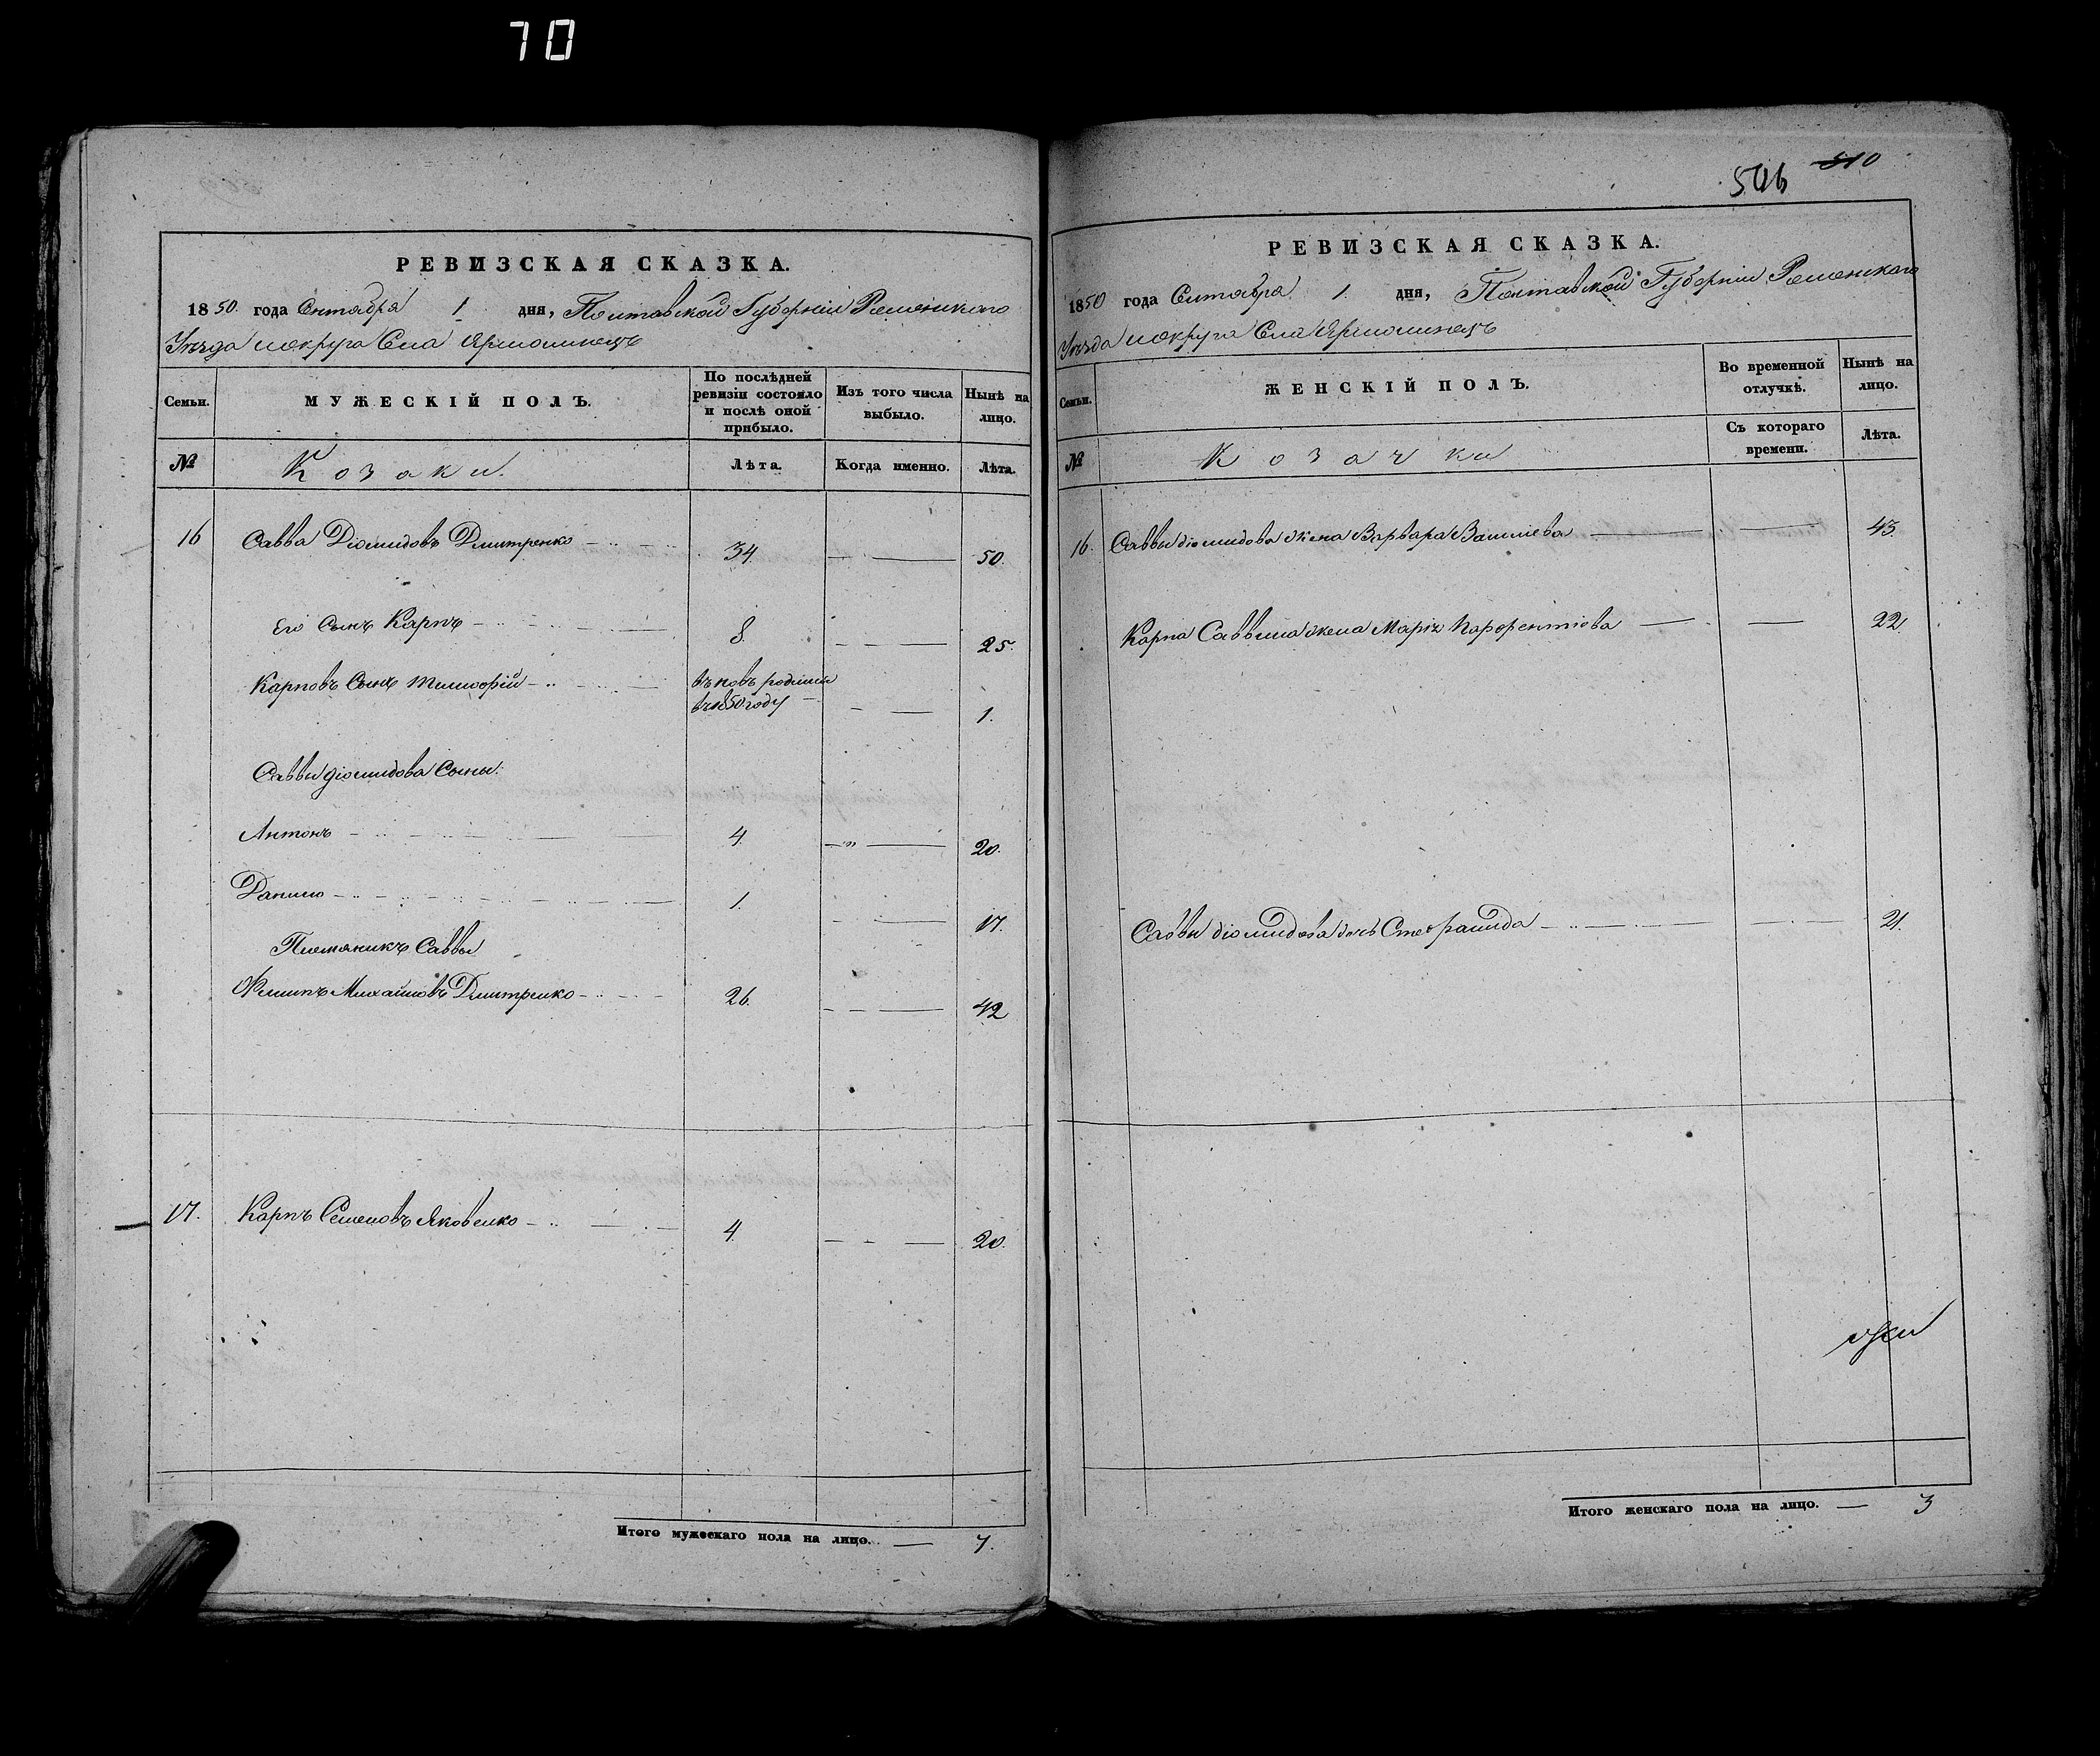 70
РЕВИЗСКАЯ СКАЗКА.
1850. года Сентября 1 дня, Полтавской Губерніи Роменскаго
Уѣзда и округа Села Ярмолинецъ
Семьи.
МУЖЕСКІЙ ПОЛЪ.
По послѣдней ревизіи состояло и послѣ оной прибыло.
Изъ того числа выбыло.
Нынѣ на лицо.
№
Козаки.
Лѣта.
Когда именно.
Лѣта.
16 Савва Діомидовъ Дмитренко 34. 50.
Его Сынъ Карпъ 8. 25.
Карповъ Сынъ Тимофій вновь родился
въ 1850 году 1.
Саввы діомидова Сыны:
Антонъ 4. 20.
Данило 1. 17.
Племяникъ Саввы
Филипъ Михайловъ Дмитренко 26. 42
17. Карпъ Семеновъ Яковенко 4. 20.
Итого мужескаго пола на лицо. 7.
506 510
РЕВИЗСКАЯ СКАЗКА.
1850 года Сентября 1. дня, Полтавской Губерніи Роменскаго
Уѣзда и округа Села Ярмолинецъ
Семьи.
ЖЕНСКІЙ ПОЛЪ.
Во временной отлучкѣ.
Нынѣ на лицо.
№
Козачки
Съ котораго времени.
Лѣта.
16. Саввы діомидова жена Варвара Васильева 43.
Карпа Саввина жена Марія Парфентіева 22.
Саввы діомидова дочь Стефанида 21.
Итого женскаго пола на лицо. 3